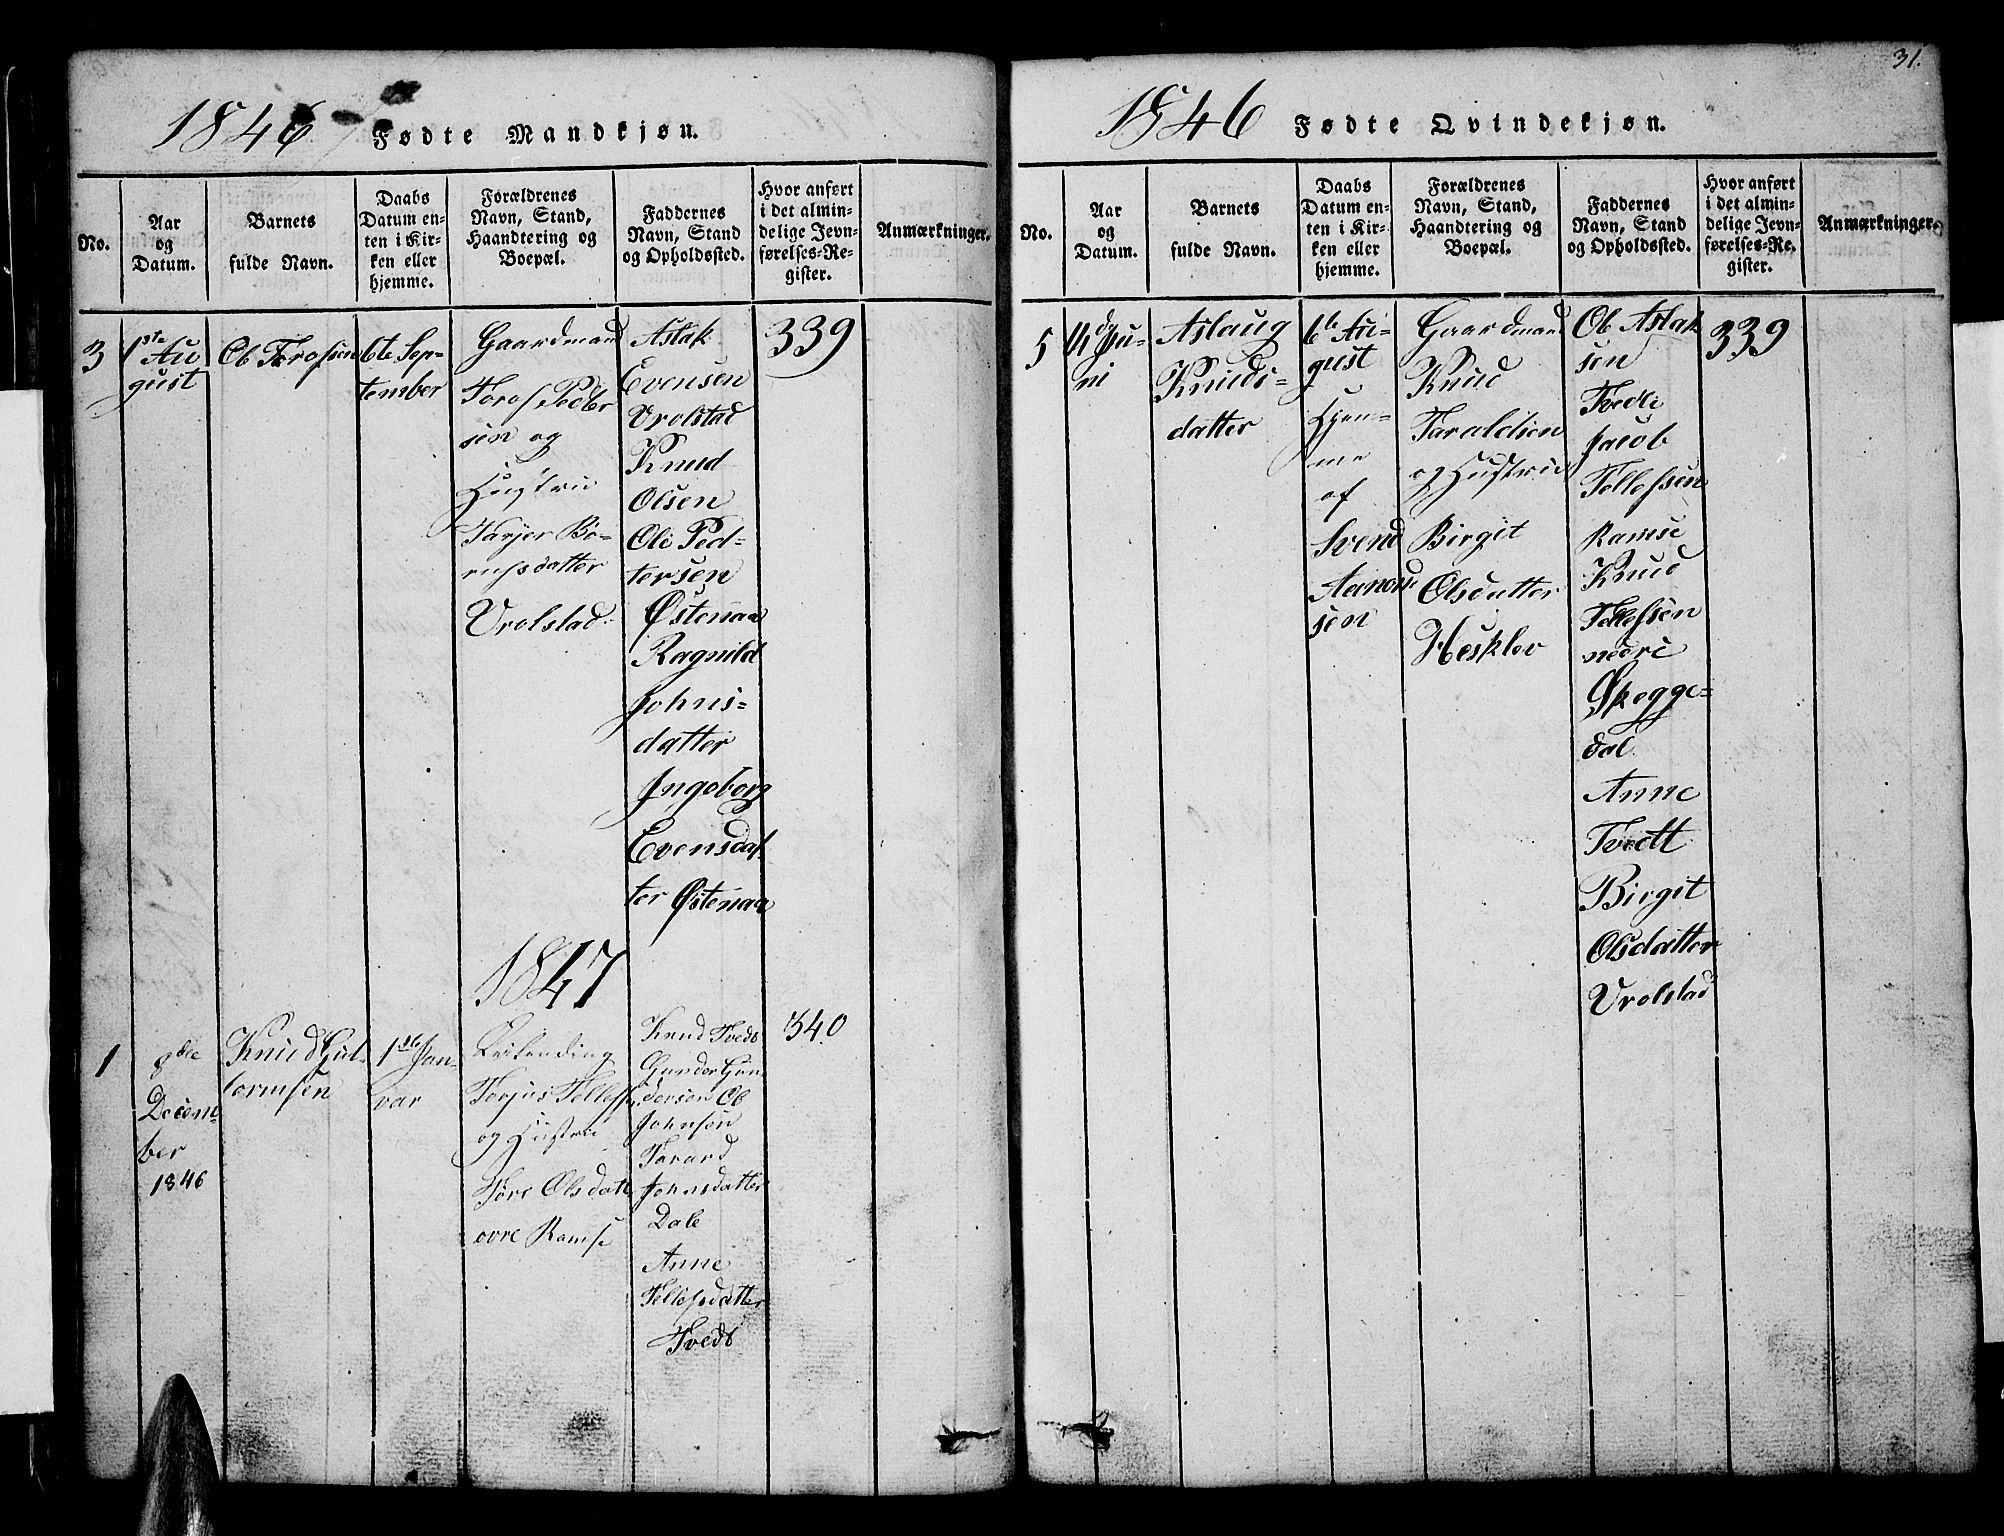 1846
Fødte Mandkjøn.
No.
Aar
og
Datum.
Barnets
fulde Navn.
Daabs
Datum en-
ten i Kir-
ken eller
hjemme.
Forældrenes
Navn, Stand,
Haandtering og
Boepæl.
Faddernes
Navn, Stand
og Opholdssted.
Hvor anført
i det almin-
delige Jevn-
førelses-Re-
gister.
Anmærkninger.
3
1ste Au
gust
Ob Torofsen
6te Sep-
tember
Gaardmand
Torof Peder
sen og
Hustrue
Tarjer Bo-
rufsdatter
Vrolstad
Aslak
Evensen
Vrolstad
Knud
Olsen
Ole Ped-
tersen
Østenaa
Ragnild
Johns-
datter
Ingeborg
Evensdat-
ter Østenaa
339
1847
1
8de
Decem-
ber
1846
Knud Gut-
tormsen
1ste Jan-
var
Leilending
Torjus Tellefsen
og Hustrue
Tore Olsdatt
ovre Ramse
Knud Tvedt
Gunder Gun
dersen Ob
Johnsen
Torard
Johnsdatter
Dale
Anne
Tellefsdatter
Tvedt
340
31.
1846
Fødte Qvindekjøn.
No.
Aar
og
Datum.
Barnets
fulde Navn.
Daabs
Datum en-
ten i Kir-
ken eller
hjemme.
Forældrenes
Navn, Stand,
Haandtering og
Boepæl.
Faddernes
Navn, Stand
og Opholdssted.
Hvor anført
i det almin-
delige Jevn-
førelses-Re-
gister.
Anmærkninger.
5
Ju-
ni
Aslaug
Knuds-
datter
6te Au-
gust
Hjem-
me
af
Svend
Aanon
sen
Gaardmand
Knud
Taraldsen
og Hustrue
Birgit
Olsdatter
Hesklev
Ob Aslak
sen
Tvedt
Jacob
Tellefsen
Ramse
Knud
Tellefsen
nedre
Skegge-
dal
Anne
Tvedt
Birgit
Olsdatter
Vrolstad
339